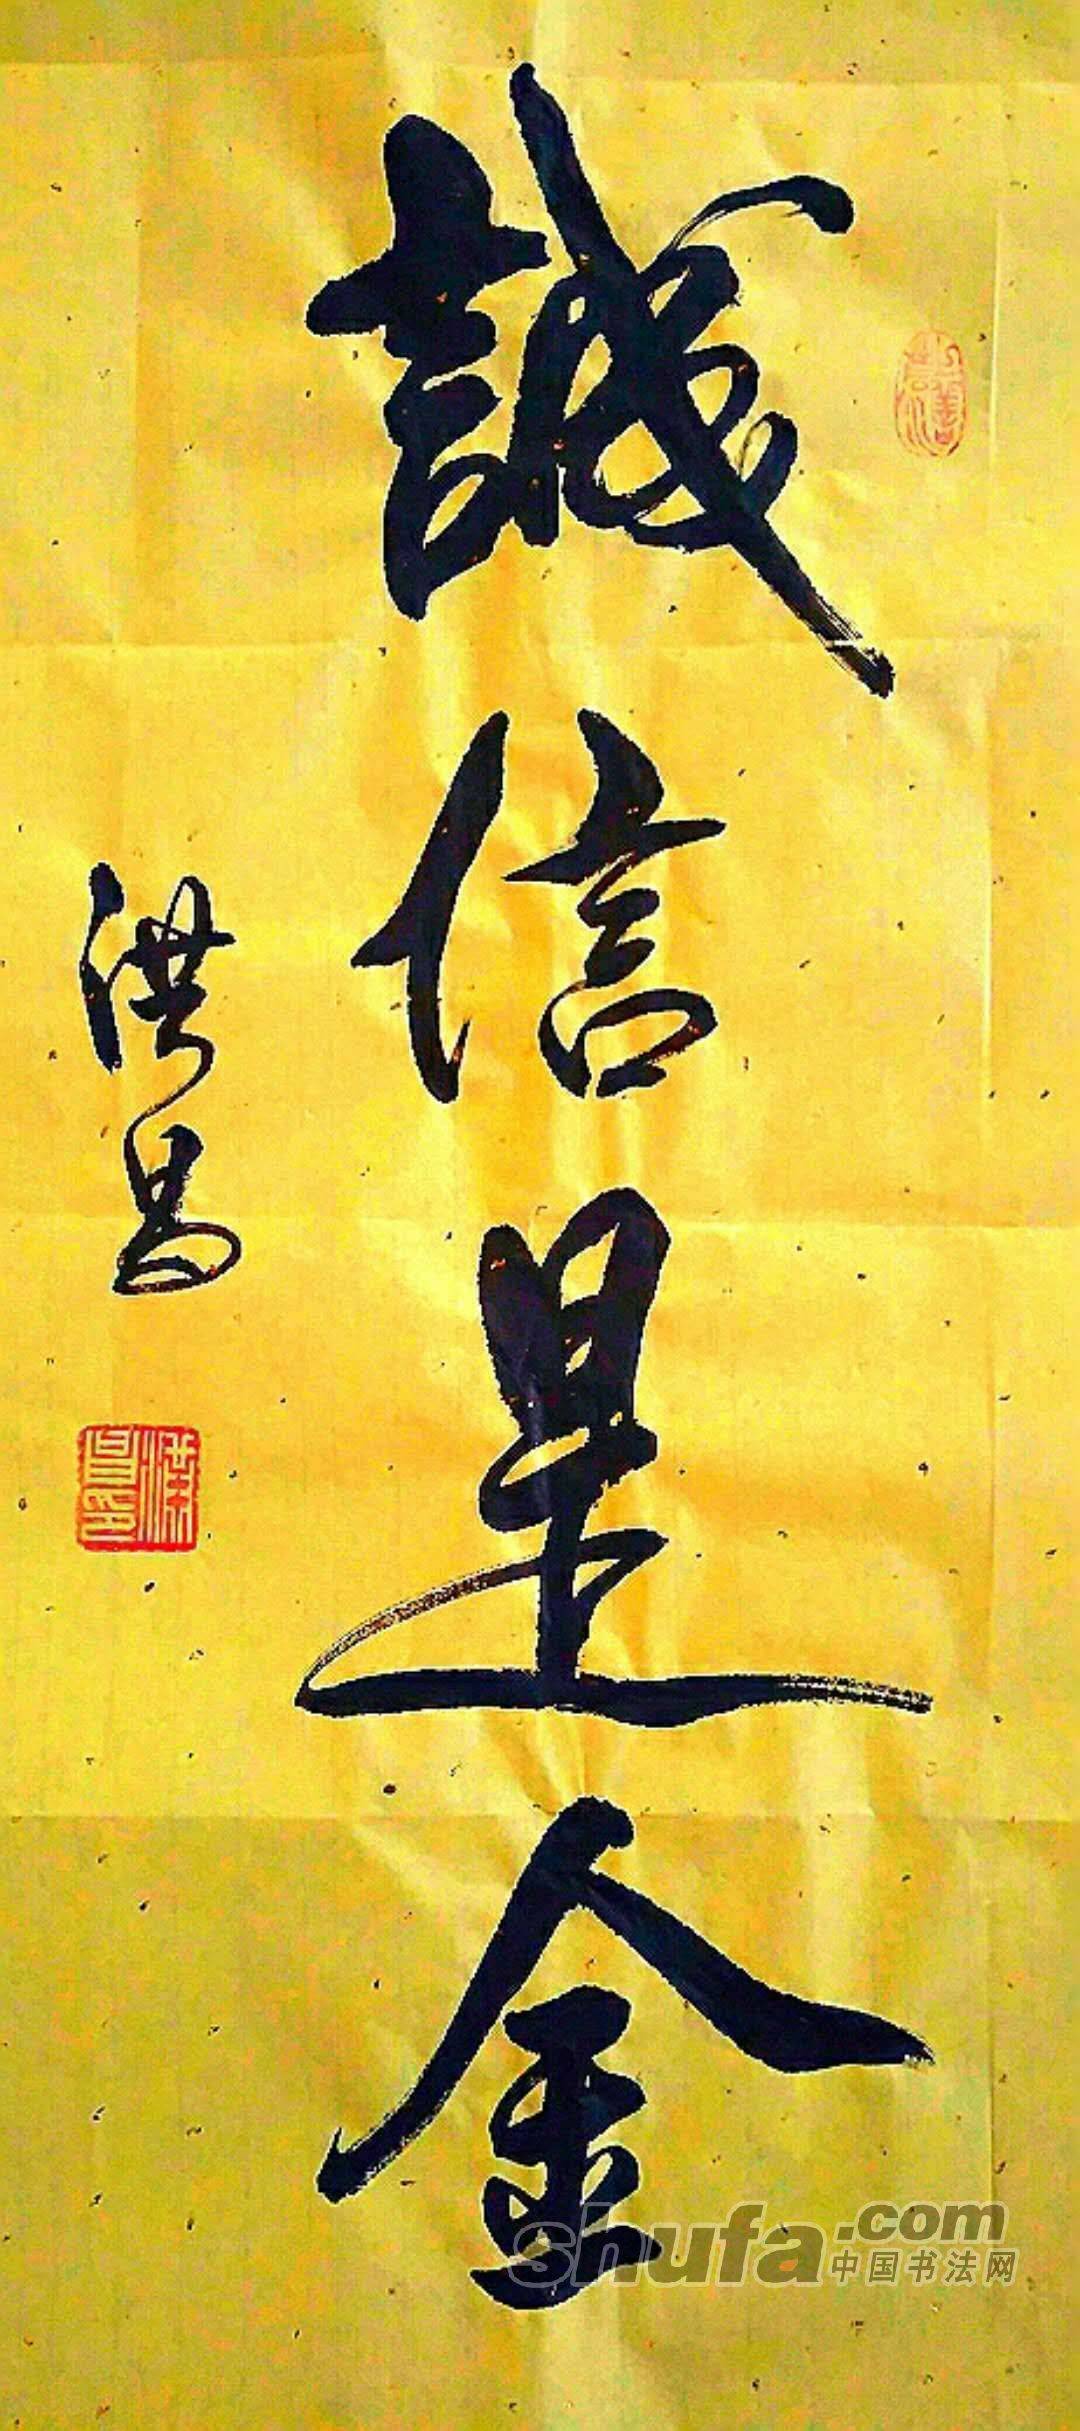 誠信是金
洪昌
shufa.com
中国书法网